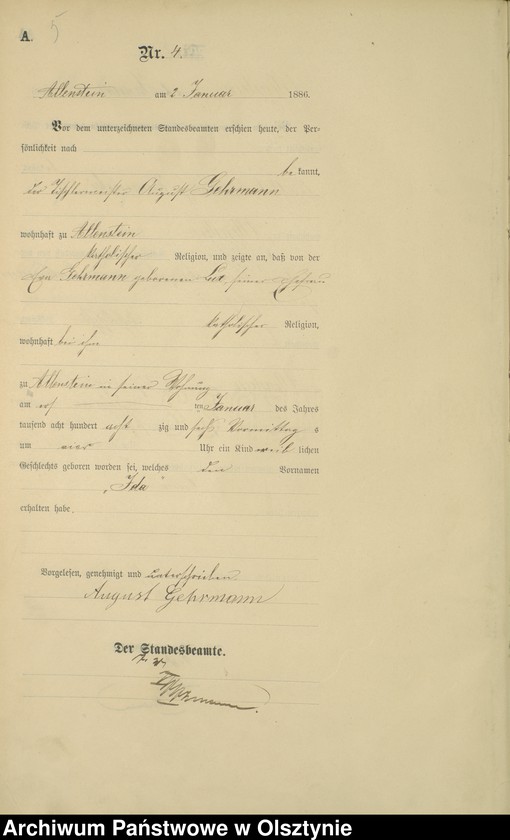 A. 5
Nr. 4.
Allenstein am 2 Januar 1886.
Vor dem unterzeichneten Standesbeamten erschien heute, der Per-
sönlichkeit nach
be kannt,
der Tischlermeister August Gehrmann
wohnhaft zu Allenstein
katholischer Religion, und zeigte an, daß von der
Gehrmann geborenen seiner Ehefrau
katholischer Religion,
wohnhaft bei ihm
zu Allenstein in seiner Wohnung
am ten Januar des Jahres
tausend acht hundert acht zig und sechs Vormittag s
um vier Uhr ein Kind weib lichen
Geschlechts geboren worden sei, welches den Vornamen
„Ida"
erhalten habe.
Vorgelesen, genehmigt und unterschrieben
August Gehrmann
Der Standesbeamte.
Archiwum Państwowe w Olsztynie